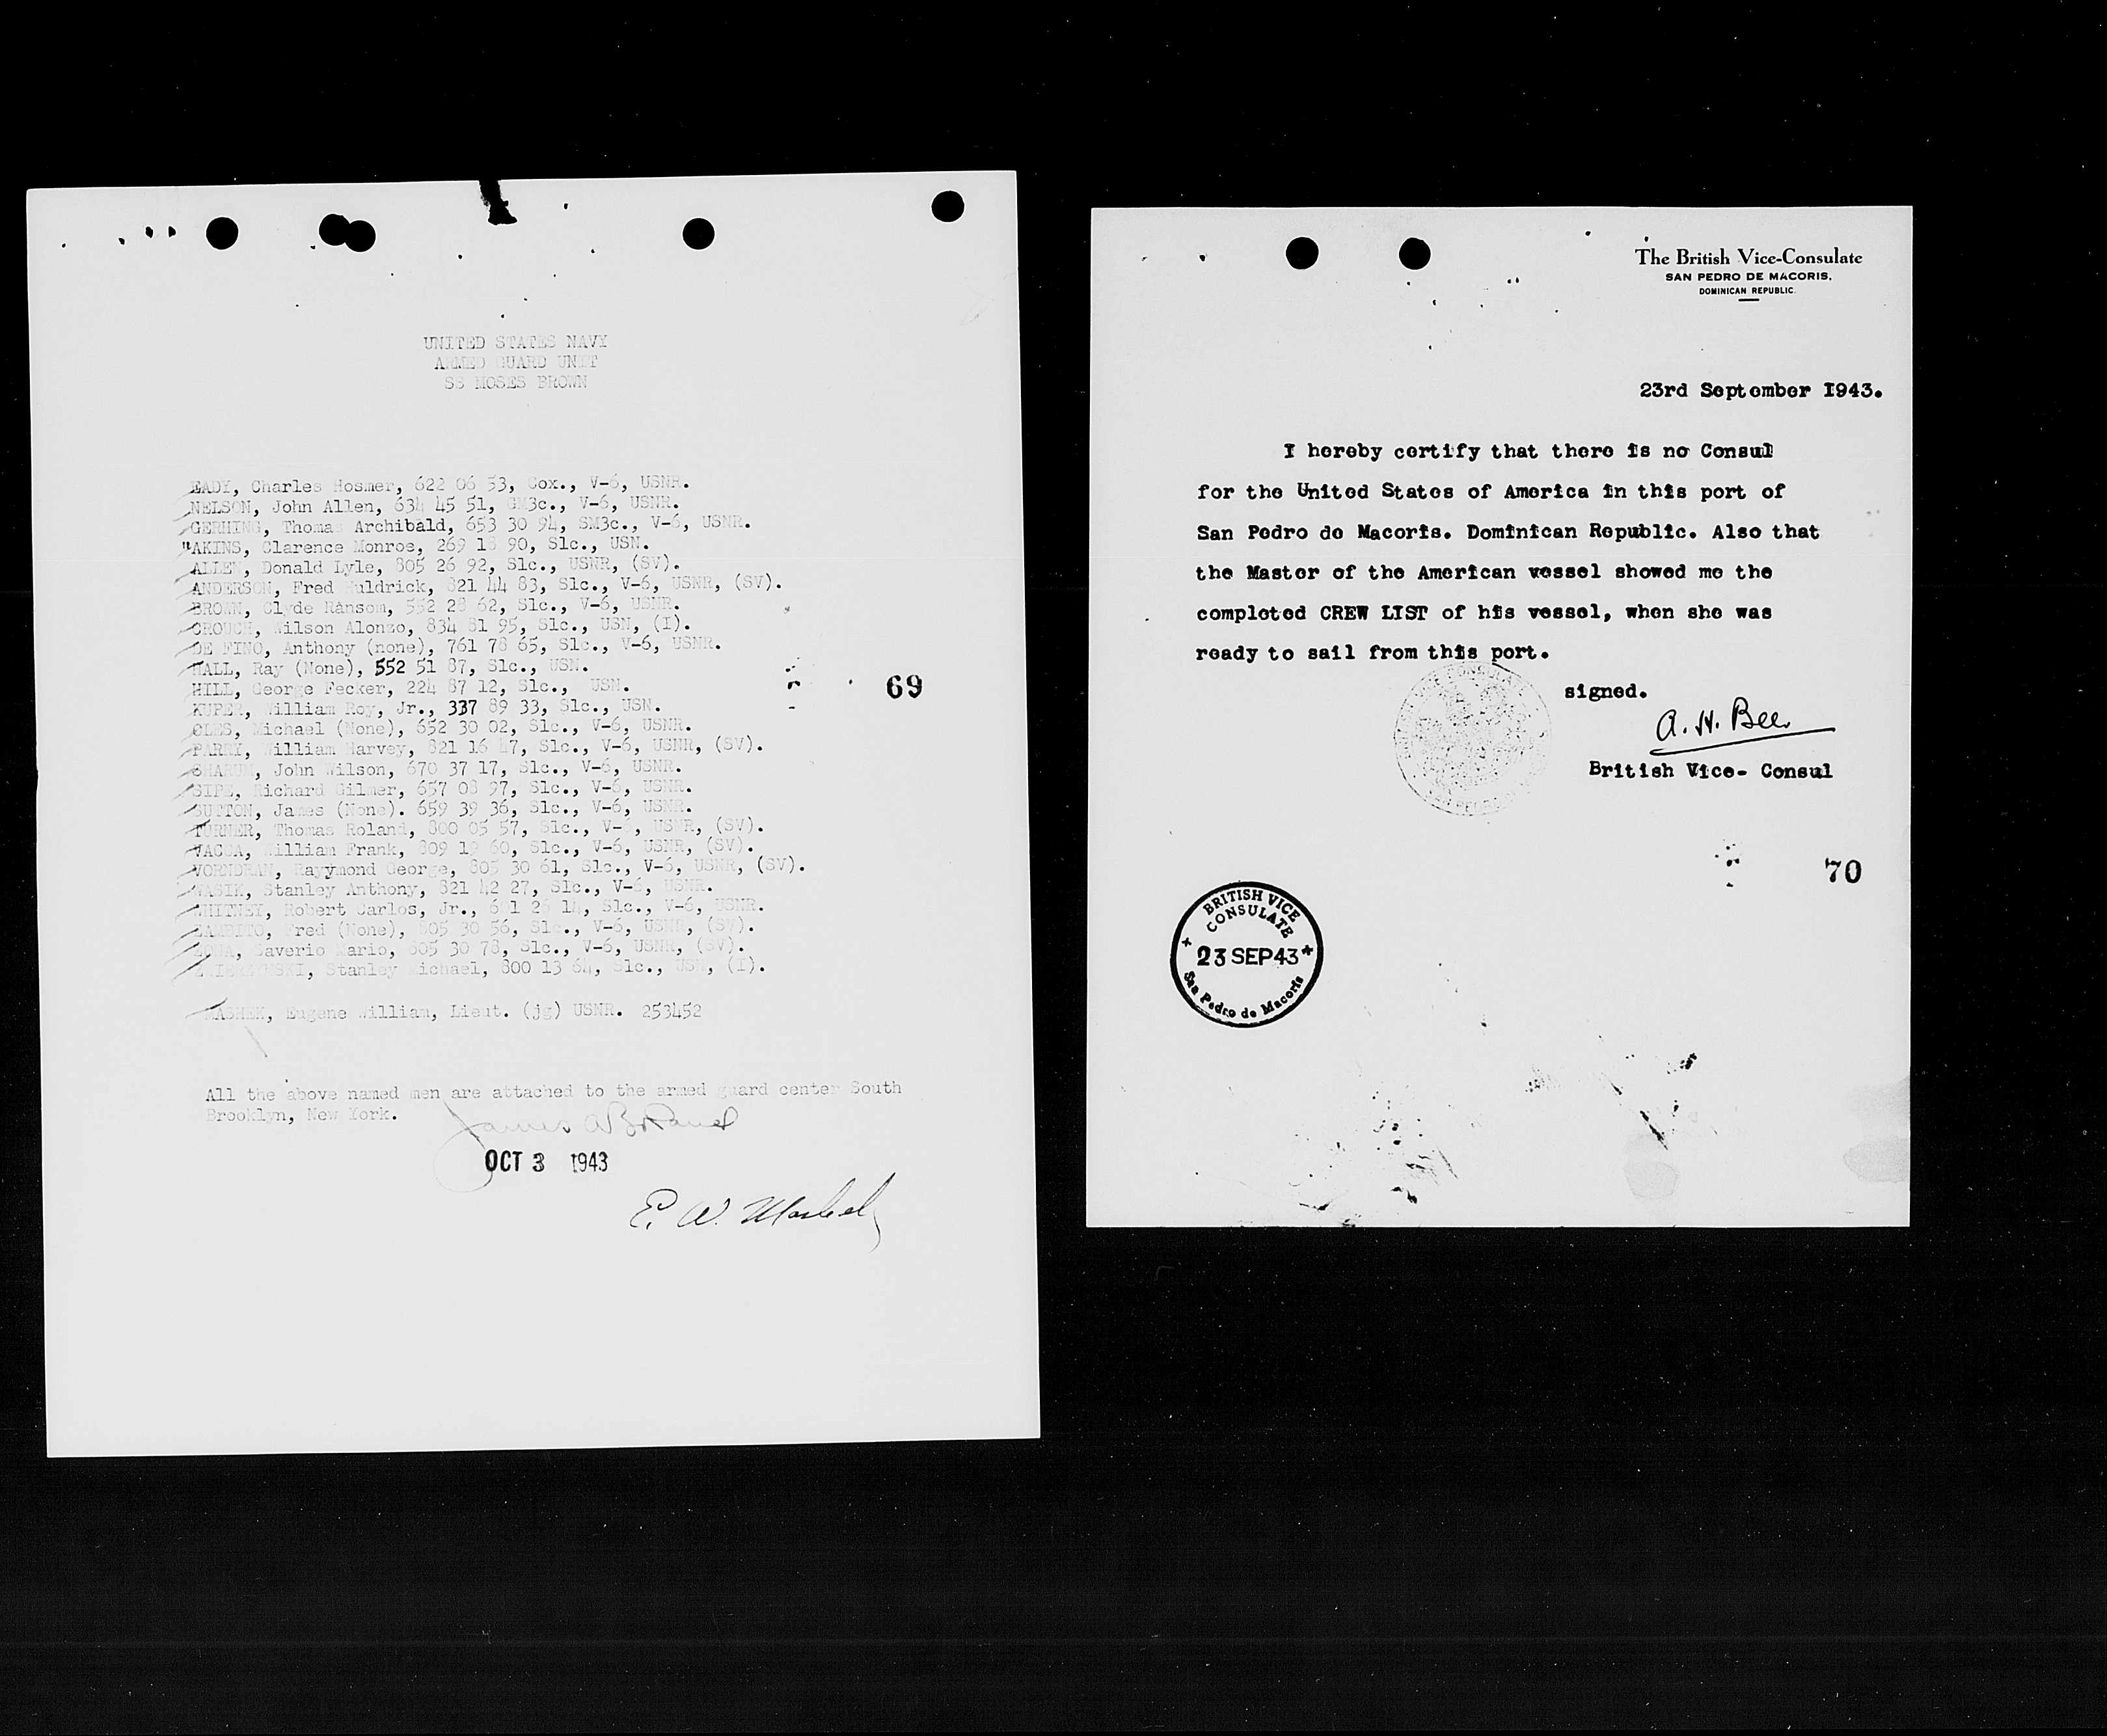 UNITED STATES NAVY
ARMED GUARD UNIT
SS MOSES BROWN
EADY, Charles Hosmer, 622 06 53, Cox., V-6, USNR.
NELSON, John Allen, 634 45 51, GM3c., V-6, USNR.
GERHING, Thomas Archibald, 653 30 94, SM3c., V-6, USNR.
"AKINS, Clarence Monroe, 269 18 90, S1c., USN.
ALLEN, Donald Lyle, 805 26 92, S1c., USNR, (SV).
ANDERSON, Fred Huldrick, 821 44 83, S1c., V-6, USNR, (SV).
BROWN, Clyde Ransom, 552 28 62, S1c., V-6, USNR.
CROUCH, Wilson Alonzo, 834 81 95, S1c., USN, (I).
DE FINO, Anthony (none), 761 78 65, S1c., V-6, USNR.
HALL, Ray (None), 552 51 87, S1c., USN.
HILL, George Fecker, 224 87 12, S1c., USN.
KUPER, William Roy, Jr., 337 89 33, S1c., USN.
OLES, Michael (None), 652 30 02, S1c., V-6, USNR.
PARRY, William Harvey, 821 16 47, S1c., V-6, USNR, (SV).
John Wilson, 670 37 17, S1c., V-6, USNR.
SIPE, Richard Gilmer, 657 08 97, S1c., V-6, USNR.
SUTTON, James (None). 659 39 36, S1c., V-6, USNR.
TURNER, Thomas Roland, 800 05 57, S1c., V-6, USNR, (SV).
VACCA, William Frank, 809 19 60, S1c., V-6, USNR, (SV).
VORNDRAN, Rayymond George, 805 30 61, S1c., V-6, USNR, (SV).
WASIK, Stanley Anthony, 821 42 27, S1c., V-6, USNR.
WHITNEY, Robert Carlos, Jr., 26 14, S1c., V-6, USNR.
ZAMBITO, Fred (None), 805 30 56, S1c., V-6, USNR, (SV).
Saverio Mario, 805 30 78, S1c., V-6, USNR, (SV).
Stanley Michael, 800 13 64, S1c., USN, (I).
MASHEK, Eugene William, Lieut. (jg) USNR. 253452
All the above named men are attached to the armed guard center South
Brooklyn, New York.
James
OCT 3 1943
E. W. Mashek
69
The British Vice-Consulate
SAN PEDRO DE MACORIS,
DOMINICAN REPUBLIC.
23rd September 1943.
I hereby certify that there is no Consul
for the United States of America in this port of
San Pedro de Macoris. Dominican Republic. Also that
the Master of the American vessel showed me the
completed CREW LIST of his vessel, when she was
ready to sail from this port.
signed.
A. H. Beer
British Vice- Consul
70
BRITISH VICE
CONSULATE
23 SEP 43
San Pedro de Macoris